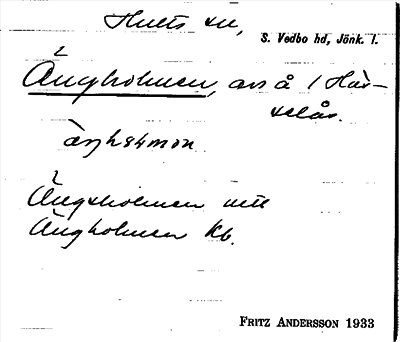 Hults sn,
S. Vedbo hd, Jönk. l.
Ängholmen, avs å / Här-
selås.
Ängsholmen
Ängholmen Kb.
FRITZ ANDERSSON 1933